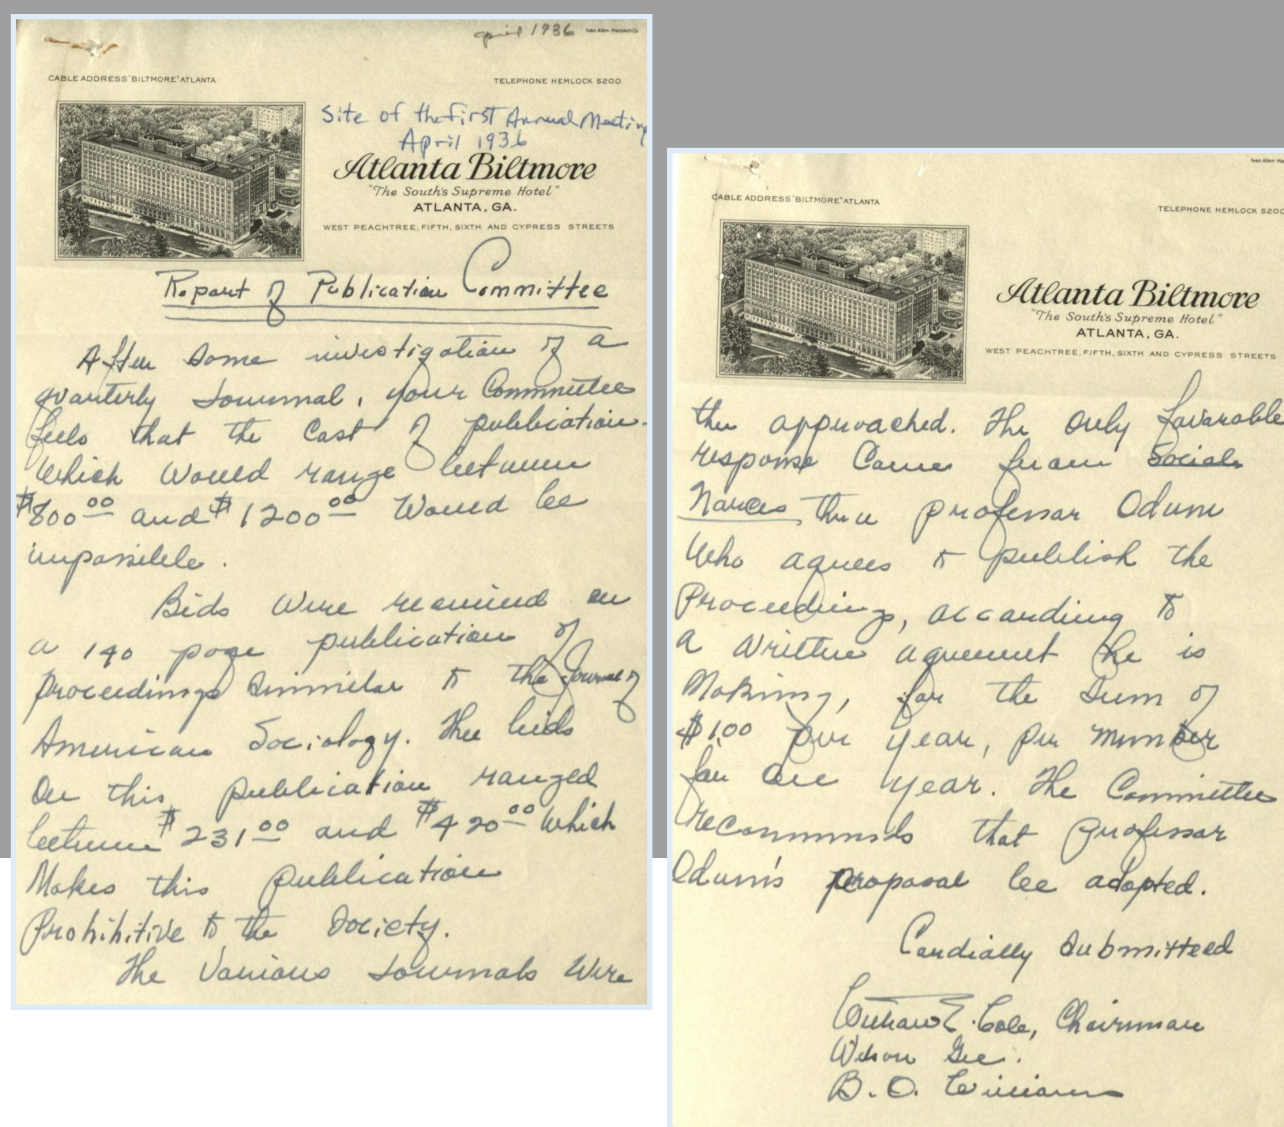 april 1936
Ivan Allen-Marshall Co
CABLE ADDRESS "BILTMORE" ATLANTA
TELEPHONE HEMLOCK 5200
Site of the first Annual Meeting
April 1936
Atlanta Biltmore
"The South's Supreme Hotel"
ATLANTA, GA.
WEST PEACHTREE, FIFTH, SIXTH AND CYPRESS STREETS
Report of Publication Committee
After some investigation of a
quarterly Journal, your Committee
feels that the cost of publication
which would range between
$800.00 and $1200.00 would be
impossible.
Bids were received on
a 140 page publication of
proceedings simmilar to the Journal of
American Sociology. The bids
on this publication ranged
between $231.00 and $420.00 which
makes this publication
prohibitive to the Society.
The various Journals were
Ivan Allen-Ma
CABLE ADDRESS "BILTMORE" ATLANTA
TELEPHONE HEMLOCK 5200
Atlanta Biltmore
"The South's Supreme Hotel"
ATLANTA, GA.
WEST PEACHTREE, FIFTH, SIXTH AND CYPRESS STREETS
then approached. The only favorable
response came from Social
Forces, thru professor Odum
who agrees to publish the
Proceedings, according to
a written agreement he is
making, for the sum of
$1.00 per year, per member
for one year. The Committee
recommends that professor
Odum's proposal be adopted.
Cordially submitted
E. Cole, Chairman
Wilson Gee.
B. O. Williams